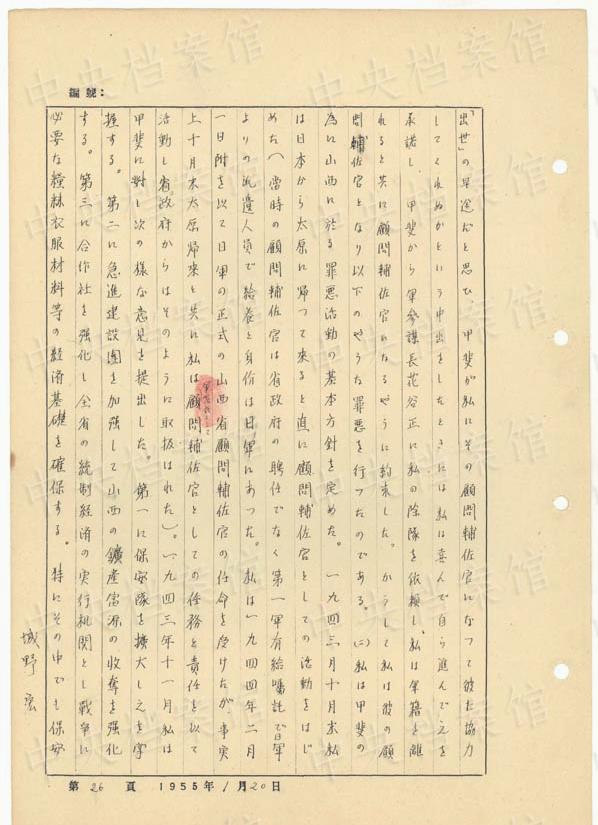 編號：
「出世」の早道だと思ひ、甲斐が私にその顧問輔佐官になつて彼に協力
してくれぬかという申出をしたときには私は喜んで自ら進んで之を
承諾し、甲斐から軍参謀長花谷正に私の除隊を依頼し、私は軍籍を離
れると共に顧問輔佐官になるやうに約束した。かうして私は彼の顧
問輔佐官となり以下のやうな罪悪を行つたのである。(二)私は甲斐の
為に山西に於る罪悪活動の基本方針を定めた。一九四三年十月末私
は日本から太原に帰つて来ると直に顧問輔佐官としての活動をはじ
めた(当時の顧問輔佐官は省政府の聘任でなく第一軍有給嘱託で日軍
よりの派遣人員で給養と身份は日軍にあつた。私は一九四四年二月
一日附を以て日軍の正式の山西省顧問輔佐官の任命を受けたが、事実
上十月末太原帰来と共に私は顧問輔佐官としての任務と責任を以て
活動し省政府からはそのように取扱はれた)。一九四三年十一月私は
甲斐に対し次の様な意見を提出した。第一に保安隊を擴大し之を掌
握する。第二に急進建設團を加強して山西の鑛産富源の收奪を強化
する。第三に合作社を強化し全省の統制経済の実行机関とし戦争に
必要な糧秣衣服材料等の経済基礎を確保する。特にその中でも保安
城野宏
第 26 頁 1955年1月20日
中央档案馆